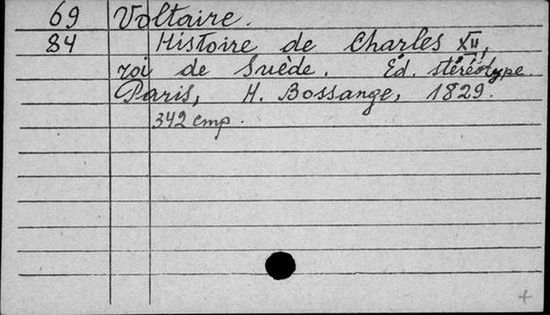 69 Voltaire.
84 Histoire de Charles XII,
roi de Suède. Éd. stéréotype.
Paris, H. Bossange, 1829.
342 стр.
+